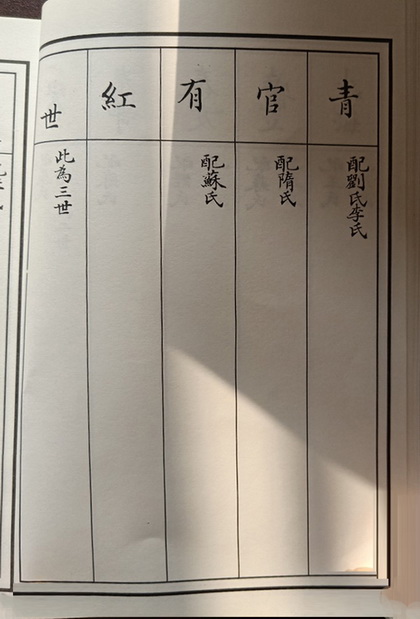 青
配劉氏李氏
官
配隋氏
有
配蘇氏
紅
世
此為三世